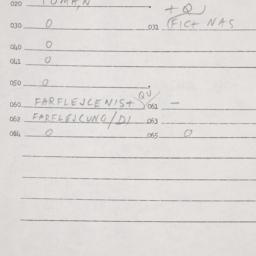 020 TOMAN
+ Q
030 0 031 (FIC+ NAS
040 0
041 0
050 0
060 FARFLEJCENIS+ QU 061 -
062 FARFLEJCUNG/DI 063
064 0 065 0